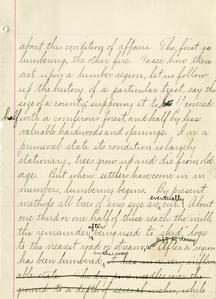 about this condition of affairs. The first is
lumbering, the other fire. To see how these
act upon a lumber region, let us follow
up the history of a particular tract, say the
size of a county supposing it to be covered
half with a coniferous forest, and half by less
valuable hardwoods and openings. In a
primeval state its condition is largely
stationary, trees grow up and die from old
age. But when settlers have come in in
numbers, lumbering begins. By present
methods all trees of any size are eventually cut. About
one third or one half of these reach the mill,
the remainder after being used to skid logs
to the nearest road or stream, After a region
has been lumbered, in this way
able state. The
ground to a depth of several inches, while